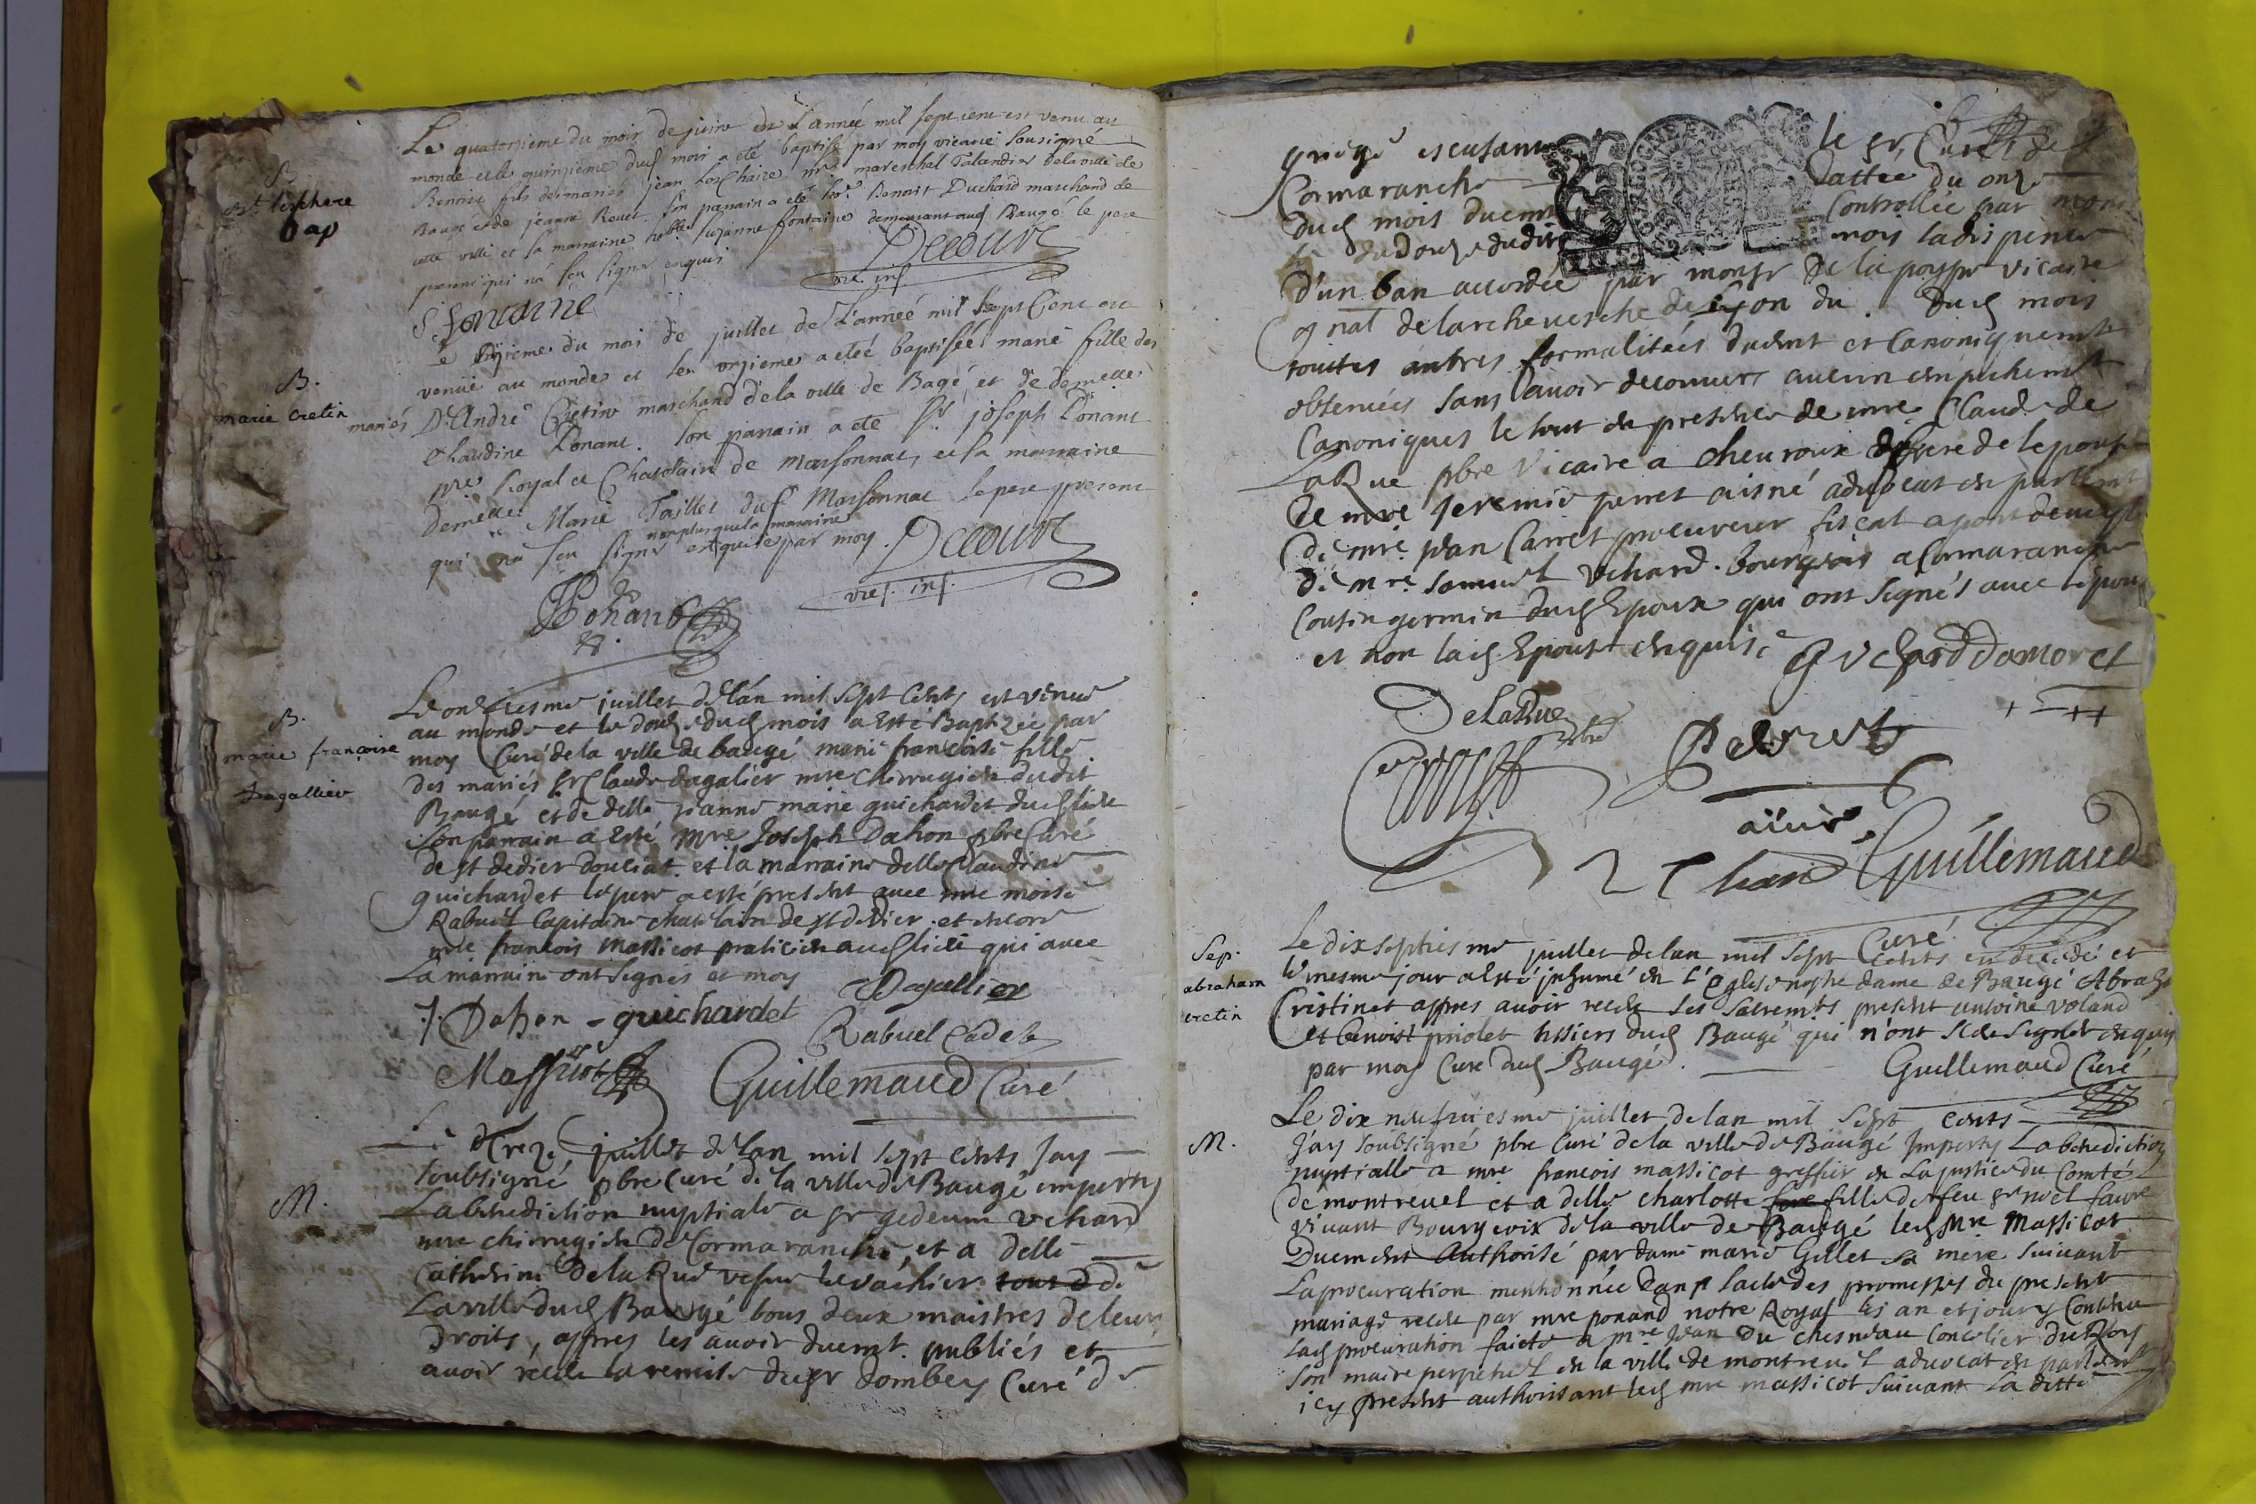 Le quatorzieme du mois de juin de L'année mil sept cent est venu au
monde et le quinzieme dud mois a été baptisé par moy vicaire sousigné
Benoist fils des mariés jean Lorchaire mre mareschal Talandier de la ville de
Baugé et de jeanne Revet. son parrain a été hor. Benoit Duchard marchand de
cette ville et la marraine hoble suzanne fontaine demeurant aud Baugé le pere
present qui na sceu signer enquis
Decour
S fontaine
vic. inf
B
bt lorchere
bap
Le dixieme du mois de juillet de L'année mil sept Cent est
venue au monde et le onzieme a eteé baptisée marie fille des
mariés Dr André Cretin marchand de la ville de Bagé et de demelle
Claudine Ponant. son parrain a été Sr. joseph Ponant
nre Royal et Chatelain de Marsonnas, et la marraine
demelle Marie Taillet dud Marsonnat le pere present
non plus que la marraine
qui na sceu signer enquise par moy. Decour
vic. inf.
Ponant
B.
marie Cretin
Le onziesme juillet de lan mil sept cents est venue
au monde et le douze dud mois a esté Baptizée par
moy Curé de la ville de baugé marie francoise fille
des mariés sr Claude dagalier mre chirurgien dudit
Baugé et de delle jeanne marie guichardet dud lieu
son parrain a esté Mre Joseph Dahon pbre Curé
de st dedier doussiat. et la marraine delle Claudine
guichardet le pere a esté present avec mre moise
Rabuel Capitaine chatelain de st didier. et encore
mre francois Massicot praticien aud lieu qui avec
La marraine ont signés et moy
Dagallier
J. Dahon - guichardet
Rabuel Cadet
Massicot
Guillemaud Curé
B.
marie françoise
Dagallier
Le treze juillet de lan mil sept cents Jay
soubsigné pbre Curé de la ville de Baugé imperty
La benediction nuptiale a sr gedeum vchard
mre chirurgien de Cormaranche, et a delle
Catherine De la Rue vefve levachier
La ville dud Baugé tous deux maistres de leurs
Droits, appres les avoir duemt. publiés et
avoir receu la remise du sr dombey Curé de
M.
griege escusant le sr Curé de
Cormaranche dattée du onze
dud mois duemt Controllée par
le du douze dudit mois la dispense
D'un ban accordée par monsr De la poype vicaire
gnal de larchevesche de Lyon du . Dud mois
touttes autres formalitées duemt et Canoniquemt
observées sans avoir decouvers aucun empechemt
Canoniques le tout en presence de mre Claude de
LaRue pbre Vicaire a cheuroux frere de lepouse
De mre Jeremie perret aisné advocat en parlemt
de mre jean Carret procureur fiscal a pont de veyle
de mre samuel vchard. bourgeois a Cormaranche
Cousin germin dud Epoux qui ont signés avec lepoux
et non lad Epouse enquise G vchard Damoret
DeLaRue
pbre
Perret
aine
Guillemaud
Curé
Sep.
abraham
cretin
Le dix septiesme juillet de lan mil sept cents est decedé et
le mesme jour a esté inhumé en L'Eglise nostre dame de Baugé Abraham
Cristinet appres avoir receu les sacremts present antoine voland
et benoist priolet tissiers dud Baugé qui n'ont sceu signer enquis
par moy Curé dud Baugé. Guillemaud Curé
M.
Le dix neufviesme juillet de lan mil sept cents
J'ay soubsigné pbre Curé de la ville de Baugé Imperty La benediction
nuptialle a mre francois massicot greffier en La justice du Comté
de montrevel et a delle charlotte fille de feu sr noel favre
vivant Bourgeoix de la ville de Baugé led Mre Massicot
Duement Authorisé par dame marie Gillet sa mere suivant
La procuration mentionnée dans lacte des promesses du present
mariage receu par mre ponand notre Royal les an et jour y Contenu
lad procuration faicte a mre Jean du chesneau Conseiller du Roy
son maire perpetuel en la ville de montrevel advocat en parlemt
icy present authorisant led mre massicot suivant La ditte